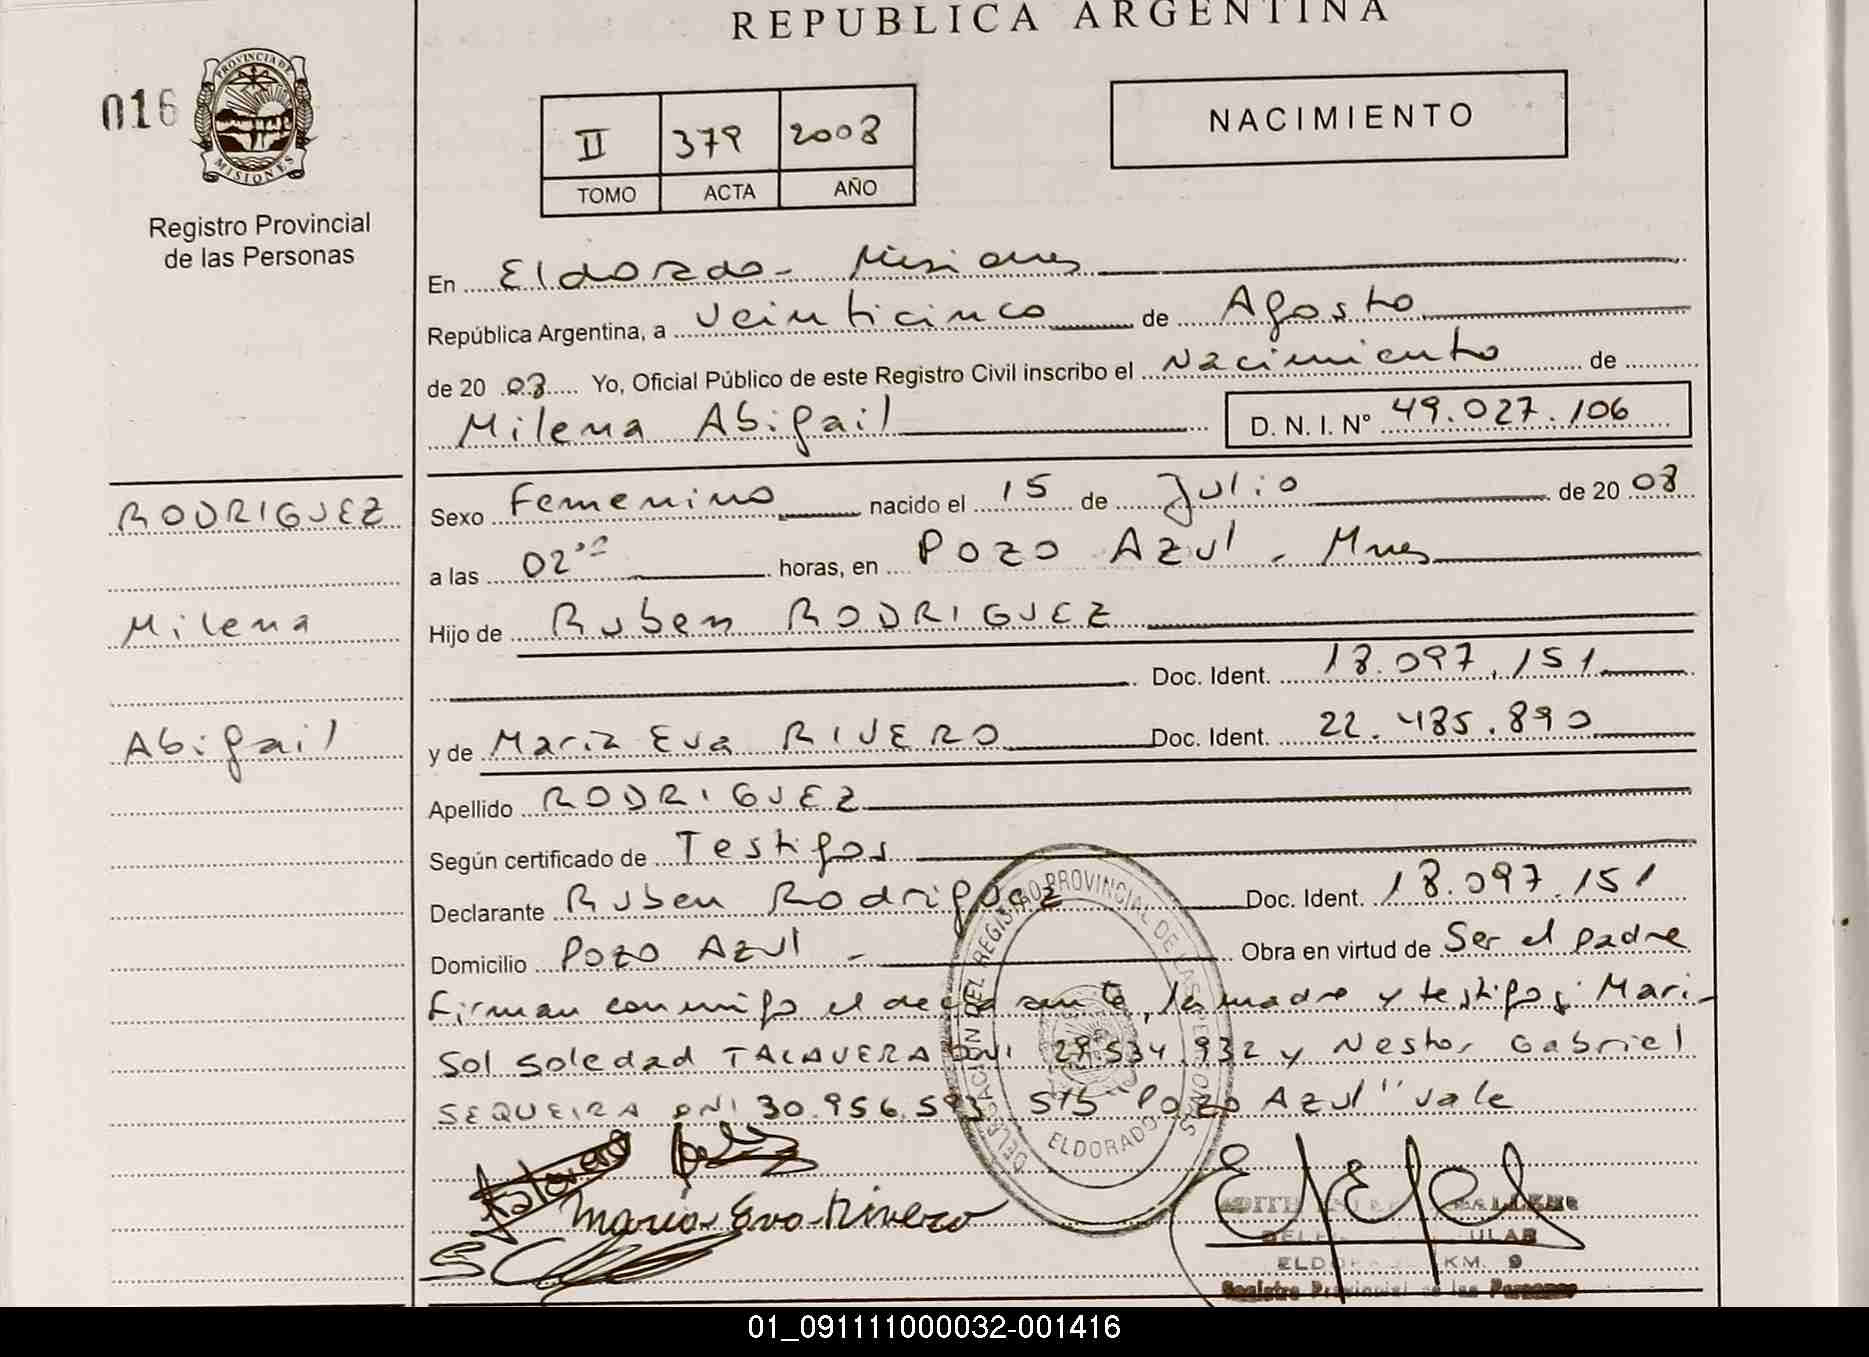 REPUBLICA ARGENTINA
016
PROVINCIA DE
MISIONES
Registro Provincial
de las Personas
II 379 2008
TOMO ACTA AÑO
NACIMIENTO
En Eldorado - Misiones
República Argentina, a veinticinco de Agosto
de 20 08 Yo, Oficial Público de este Registro Civil inscribo el Nacimiento de
Milena Abigail D. N. I. Nº 49.027.106
RODRIGUEZ
Milena
Abigail
Sexo Femenino nacido el 15 de Julio de 20 08
a las 02 horas, en Pozo Azul - Mnes
Hijo de Ruben RODRIGUEZ
Doc. Ident. 18.097.151
y de Maria Eva RIVERO Doc. Ident. 22.485.890
Apellido RODRIGUEZ
Según certificado de Testigos
Declarante Ruben Rodriguez Doc. Ident. 18.097.151
Domicilio Pozo Azul - Obra en virtud de Ser el padre
Firman conmigo el declarante, la madre y testigos: Mari-
Sol Soledad TALAVERA DNI 29.534.932 y Nestor Gabriel
SEQUEIRA DNI 30.956.593 S/S "Pozo Azul" vale
DELEGACION DEL REGISTRO PROVINCIAL DE LAS PERSONAS
ELDORADO
Talavera
Maria Eva Rivero
KM. 9
Registro Provincial de las Personas
01_091111000032-001416